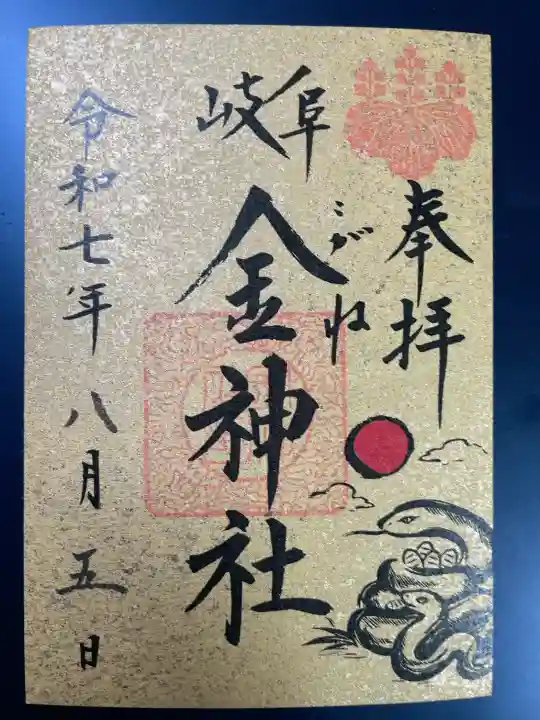 奉拝
岐阜
金神社
こがね
令和七年八月五日